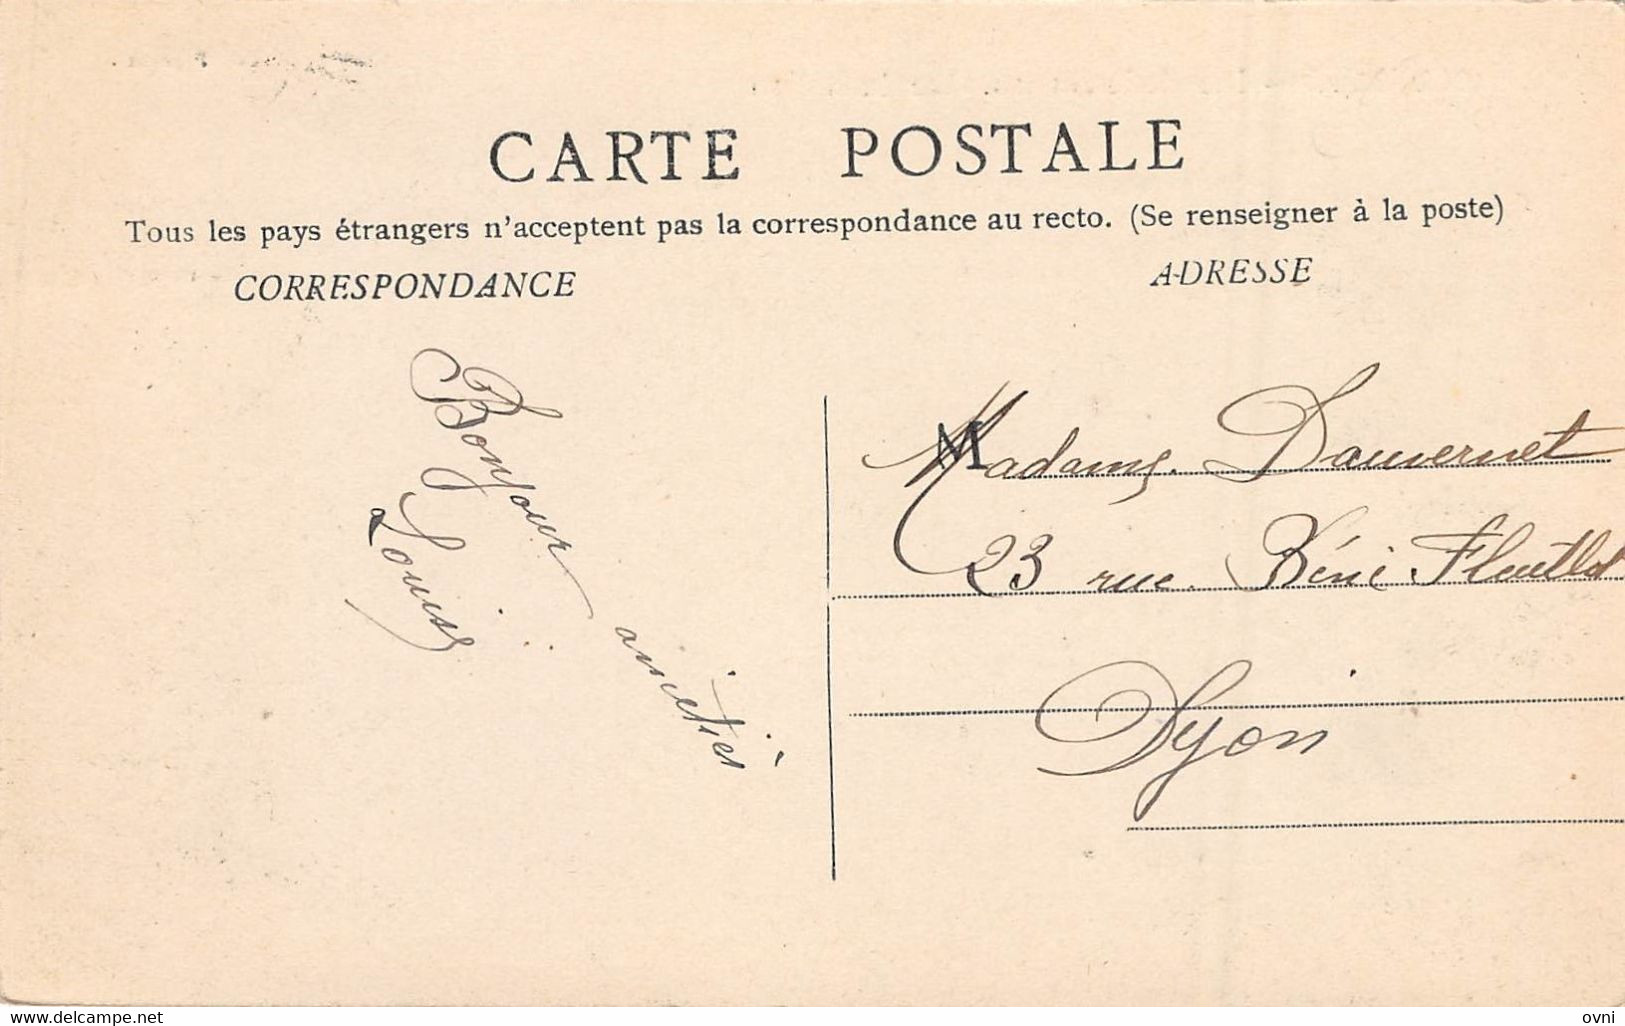 CARTE POSTALE
Tous les pays étrangers n'acceptent pas la correspondance au recto. (Se renseigner à la poste)
CORRESPONDANCE
ADRESSE
Bonjour amitiés
Louise
Madame Dauvernet
23 rue
Dijon
www.delcampe.net
ovni